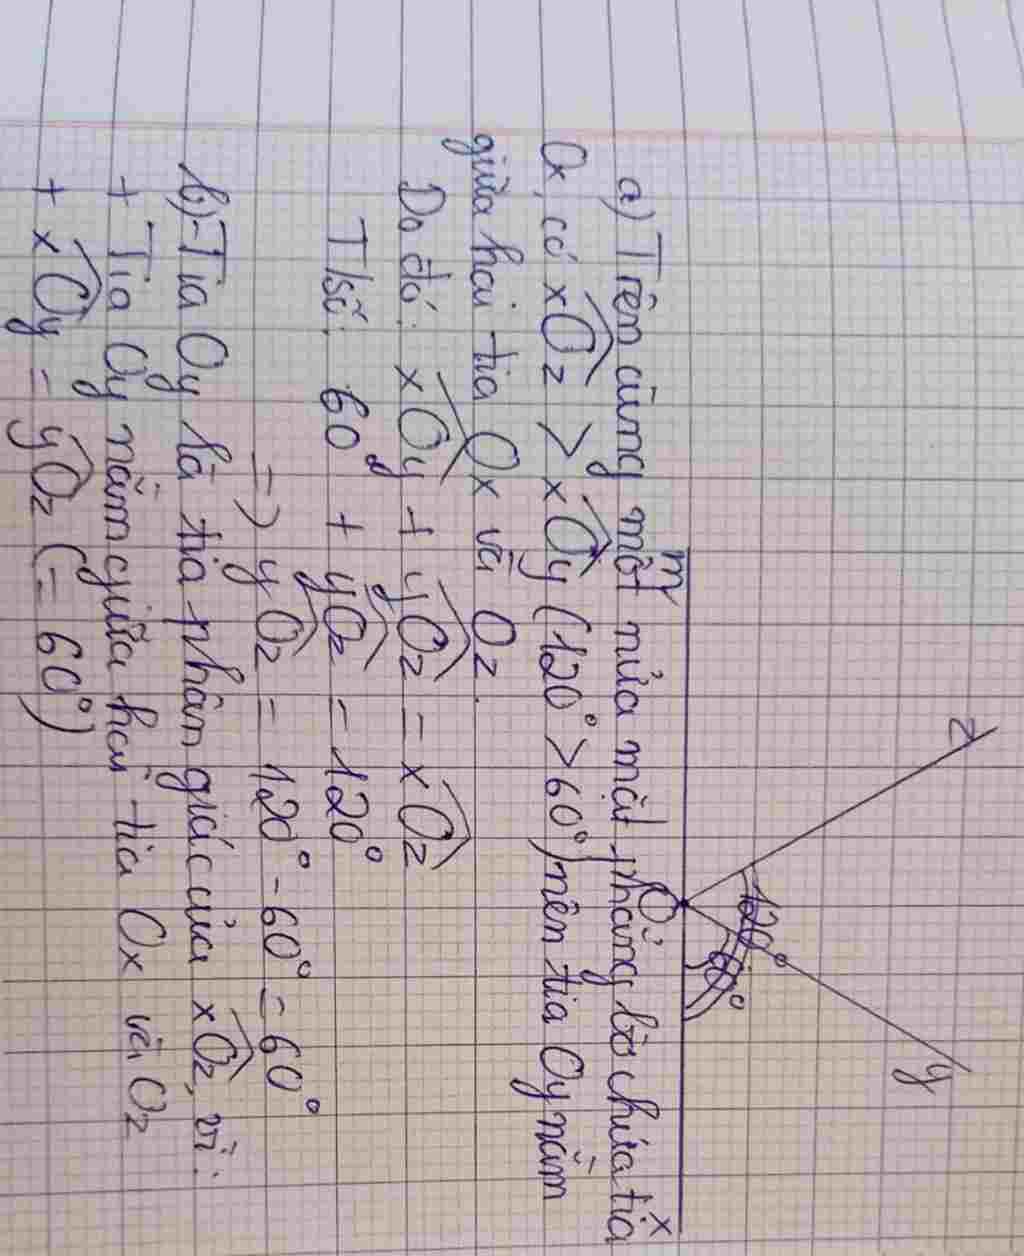 z
y
120°
60°
m
O
x
a) Trên cùng một nửa mặt phẳng bờ chứa tia
Ox, có xOz > xOy (120° > 60°) nên tia Oy nằm
giữa hai tia Ox và Oz.
Do đó: xOy + yOz = xOz
T/số: 60° + yOz = 120°
=> yOz = 120° - 60° = 60°
b) - Tia Oy là tia phân giác của xOz, vì:
+ Tia Oy nằm giữa hai tia Ox và Oz
+ xOy = yOz (= 60°)